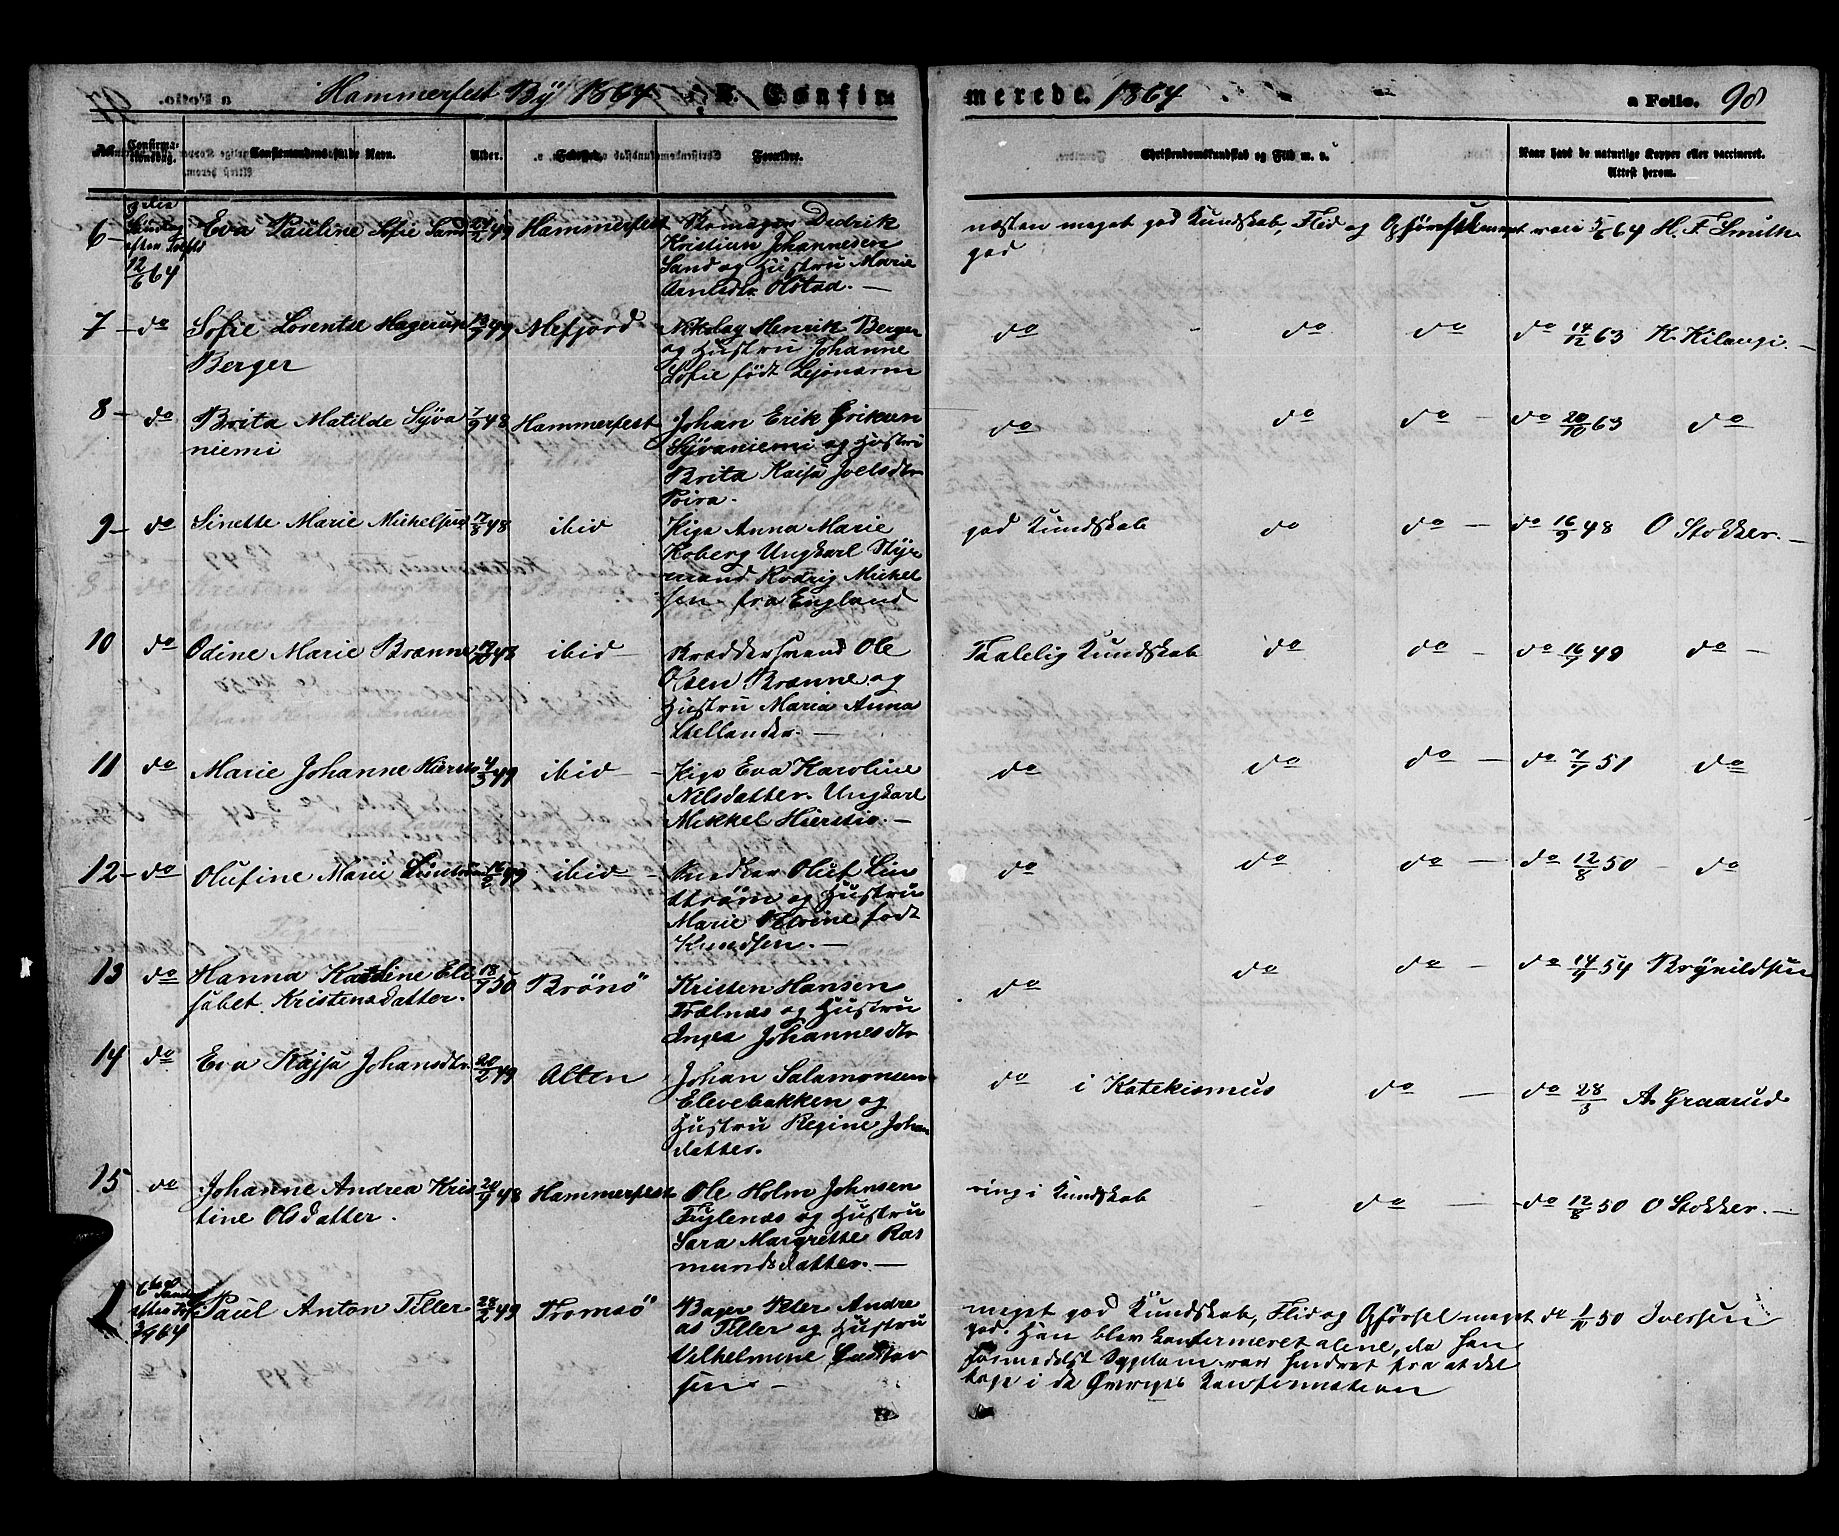 Hammerfest By 1864 Confir
merede. 1864 a Folio. 98
No. Confirma-tionsdag. Confirmandens fulde Navn. Alder. Fødested. Forældre. Christendomskundskab og Flid m. v. Naar havt de naturlige Kopper eller vaccineret.
Attest herom.
6 Søndag efter Trefd 12/6 64 Eva Pauline Sofie Sand 49 Hammerfest Skomager Dedrik
Kristian Johannesen
Sand og Hustru Marie
Arntsdtr Olstad. —
næsten meget god Kundskab, Flid og Opførsel meget
god
vacc 5/6 64 H. F. Smith
7 — do Sofie Lorentse Hagerup
Berger
49 Mefjord Nikolay Henrik Berger
og Hustru Johanne
Sofie født
do do do do 14/12 63 K. Kilengi. —
8 — do Brita Matilde Syva
niemi
7/9 48 Hammerfest Johan Erik Eriksen
Syvaniemi og Hustru
Brita Kaisa Joelsdtr
Poira.
do do do — do 20/10 63 do
9 — do Sinette Marie Michelsen 17/8 48 ibid Pige Anna Marie
Koberg Ungkarl Styr
mand Rodrig Michel
sen fra England
god Kundskab do do — do 16/9 48 O Stokker. —
10 do Odine Marie Brænne 48 ibid Skrædersvend Ole
Olsen Brænne og
Hustru Maria Anna
Stellander. —
Taalelig Kundskab do do — do 16/9 49 do —
11 do Marie Johanne Hiersio 4/3 49 ibid — Pige Eva Karoline
Nilsdatter Ungkarl
Mikkel Hiersio. —
do do do — do 7/9 51 do
12 — do Olufine Marie 16/2 49 ibid — Snedker Oluf Lin
strøm og Hustru
Marie Petrine født
Knudsen. —
do do do — do 12/8 50 — do
13 do Hanna Kathine Eli
sabet Kristensdatter.
18/9 50 Brönö Kristen Hansen
Trælnæs og Hustru
Inger Johannesdtr
do do do — do 14/9 54 Brynildsen
14 do Eva Kajsa Johansdtr. 20/2 49 Alten Johan Salamonsen
Elevebakken og
Hustru Regine Johan
datter.
do i Katekismus do — do 28/3 A. Graarud
15 do Johanne Andrea Kris
tine Olsdatter.
20/9 48 Hammerfest Ole Holm Johnsen
Fuglenæs og Hustru
Sara Margrethe Ras
mundsdatter. —
ringe Kundskab do — do 12/8 50 O Stokker. —
1 6te Sønd
efter Tref
64
Paul Anton Tiller 28/2 49 Tromsö Bager Peter Andre
as Tiller og Hustru
Vilhelmine Gustav
sen —
meget god Kundskab, Flid og Opførsel meget
god. Han blev konfirmeret alene, da han
formedelst Sygdom var hindret fra at del
tage i de Øvriges Konfirmation
do 1/10 50 Iversen